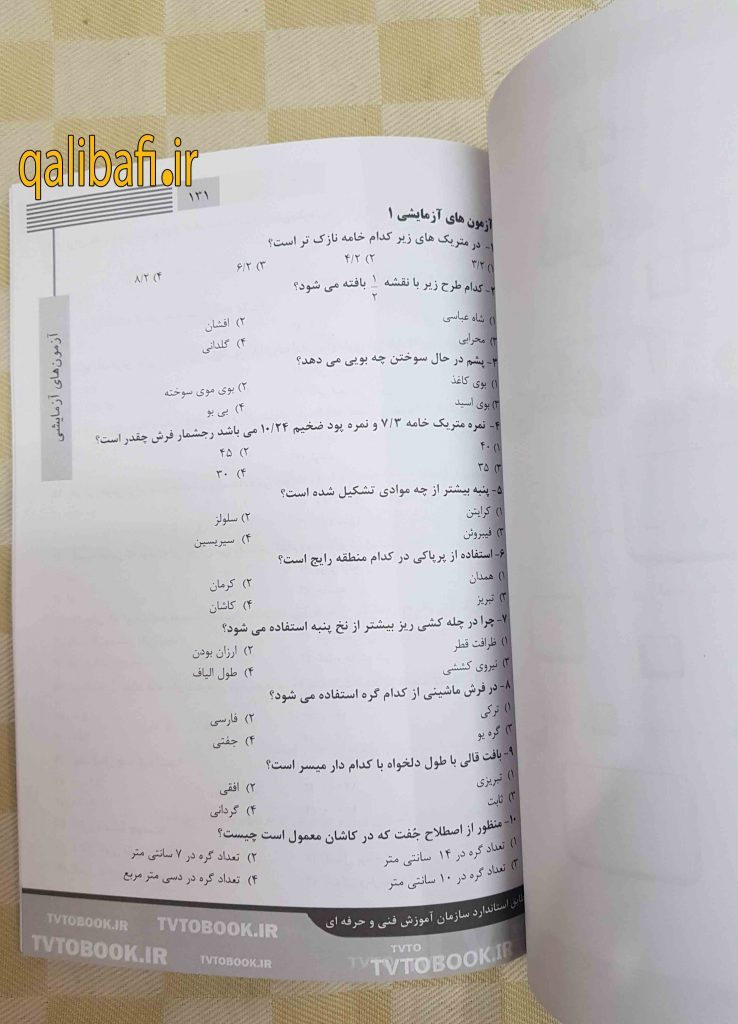 qalibafi.ir
۱۳۱
آزمون های آزمایشی ۱
۱- در متریک های زیر کدام خامه نازک تر است؟
۱) ۳/۲ ۲) ۴/۲ ۳) ۶/۲ ۴) ۸/۲
۲- کدام طرح زیر با نقشه ۱/۲ بافته می شود؟
۱) شاه عباسی ۲) افشان
۳) محرابی ۴) گلدانی
۳- پشم در حال سوختن چه بویی می دهد؟
۱) بوی کاغذ ۲) بوی موی سوخته
۳) بوی اسید ۴) بی بو
۴- نمره متریک خامه ۷/۳ و نمره پود ضخیم ۱۰/۲۴ می باشد رجشمار فرش چقدر است؟
۱) ۴۰ ۲) ۴۵
۳) ۳۵ ۴) ۳۰
۵- پنبه بیشتر از چه موادی تشکیل شده است؟
۱) کرایتن ۲) سلولز
۳) فیبروئن ۴) سیریسین
۶- استفاده از پرپاکی در کدام منطقه رایج است؟
۱) همدان ۲) کرمان
۳) تبریز ۴) کاشان
۷- چرا در چله کشی ریز بیشتر از نخ پنبه استفاده می شود؟
۱) ظرافت قطر ۲) ارزان بودن
۳) نیروی کششی ۴) طول الیاف
۸- در فرش ماشینی از کدام گره استفاده می شود؟
۱) ترکی ۲) فارسی
۳) گره یو ۴) جفتی
۹- بافت قالی با طول دلخواه با کدام دار میسر است؟
۱) تبریزی ۲) افقی
۳) ثابت ۴) گردانی
۱۰- منظور از اصطلاح جُفت که در کاشان معمول است چیست؟
۱) تعداد گره در ۱۴ سانتی متر ۲) تعداد گره در ۷ سانتی متر
۳) تعداد گره در ۱۰ سانتی متر ۴) تعداد گره در دسی متر مربع
آزمون‌های آزمایشی
استاندارد سازمان آموزش فنی و حرفه ای
TVTOBOOK.IR TVTOBOOK.IR TVTO
TVTOBOOK.IR TVTOBOOK.IR TVTOBOOK.IR